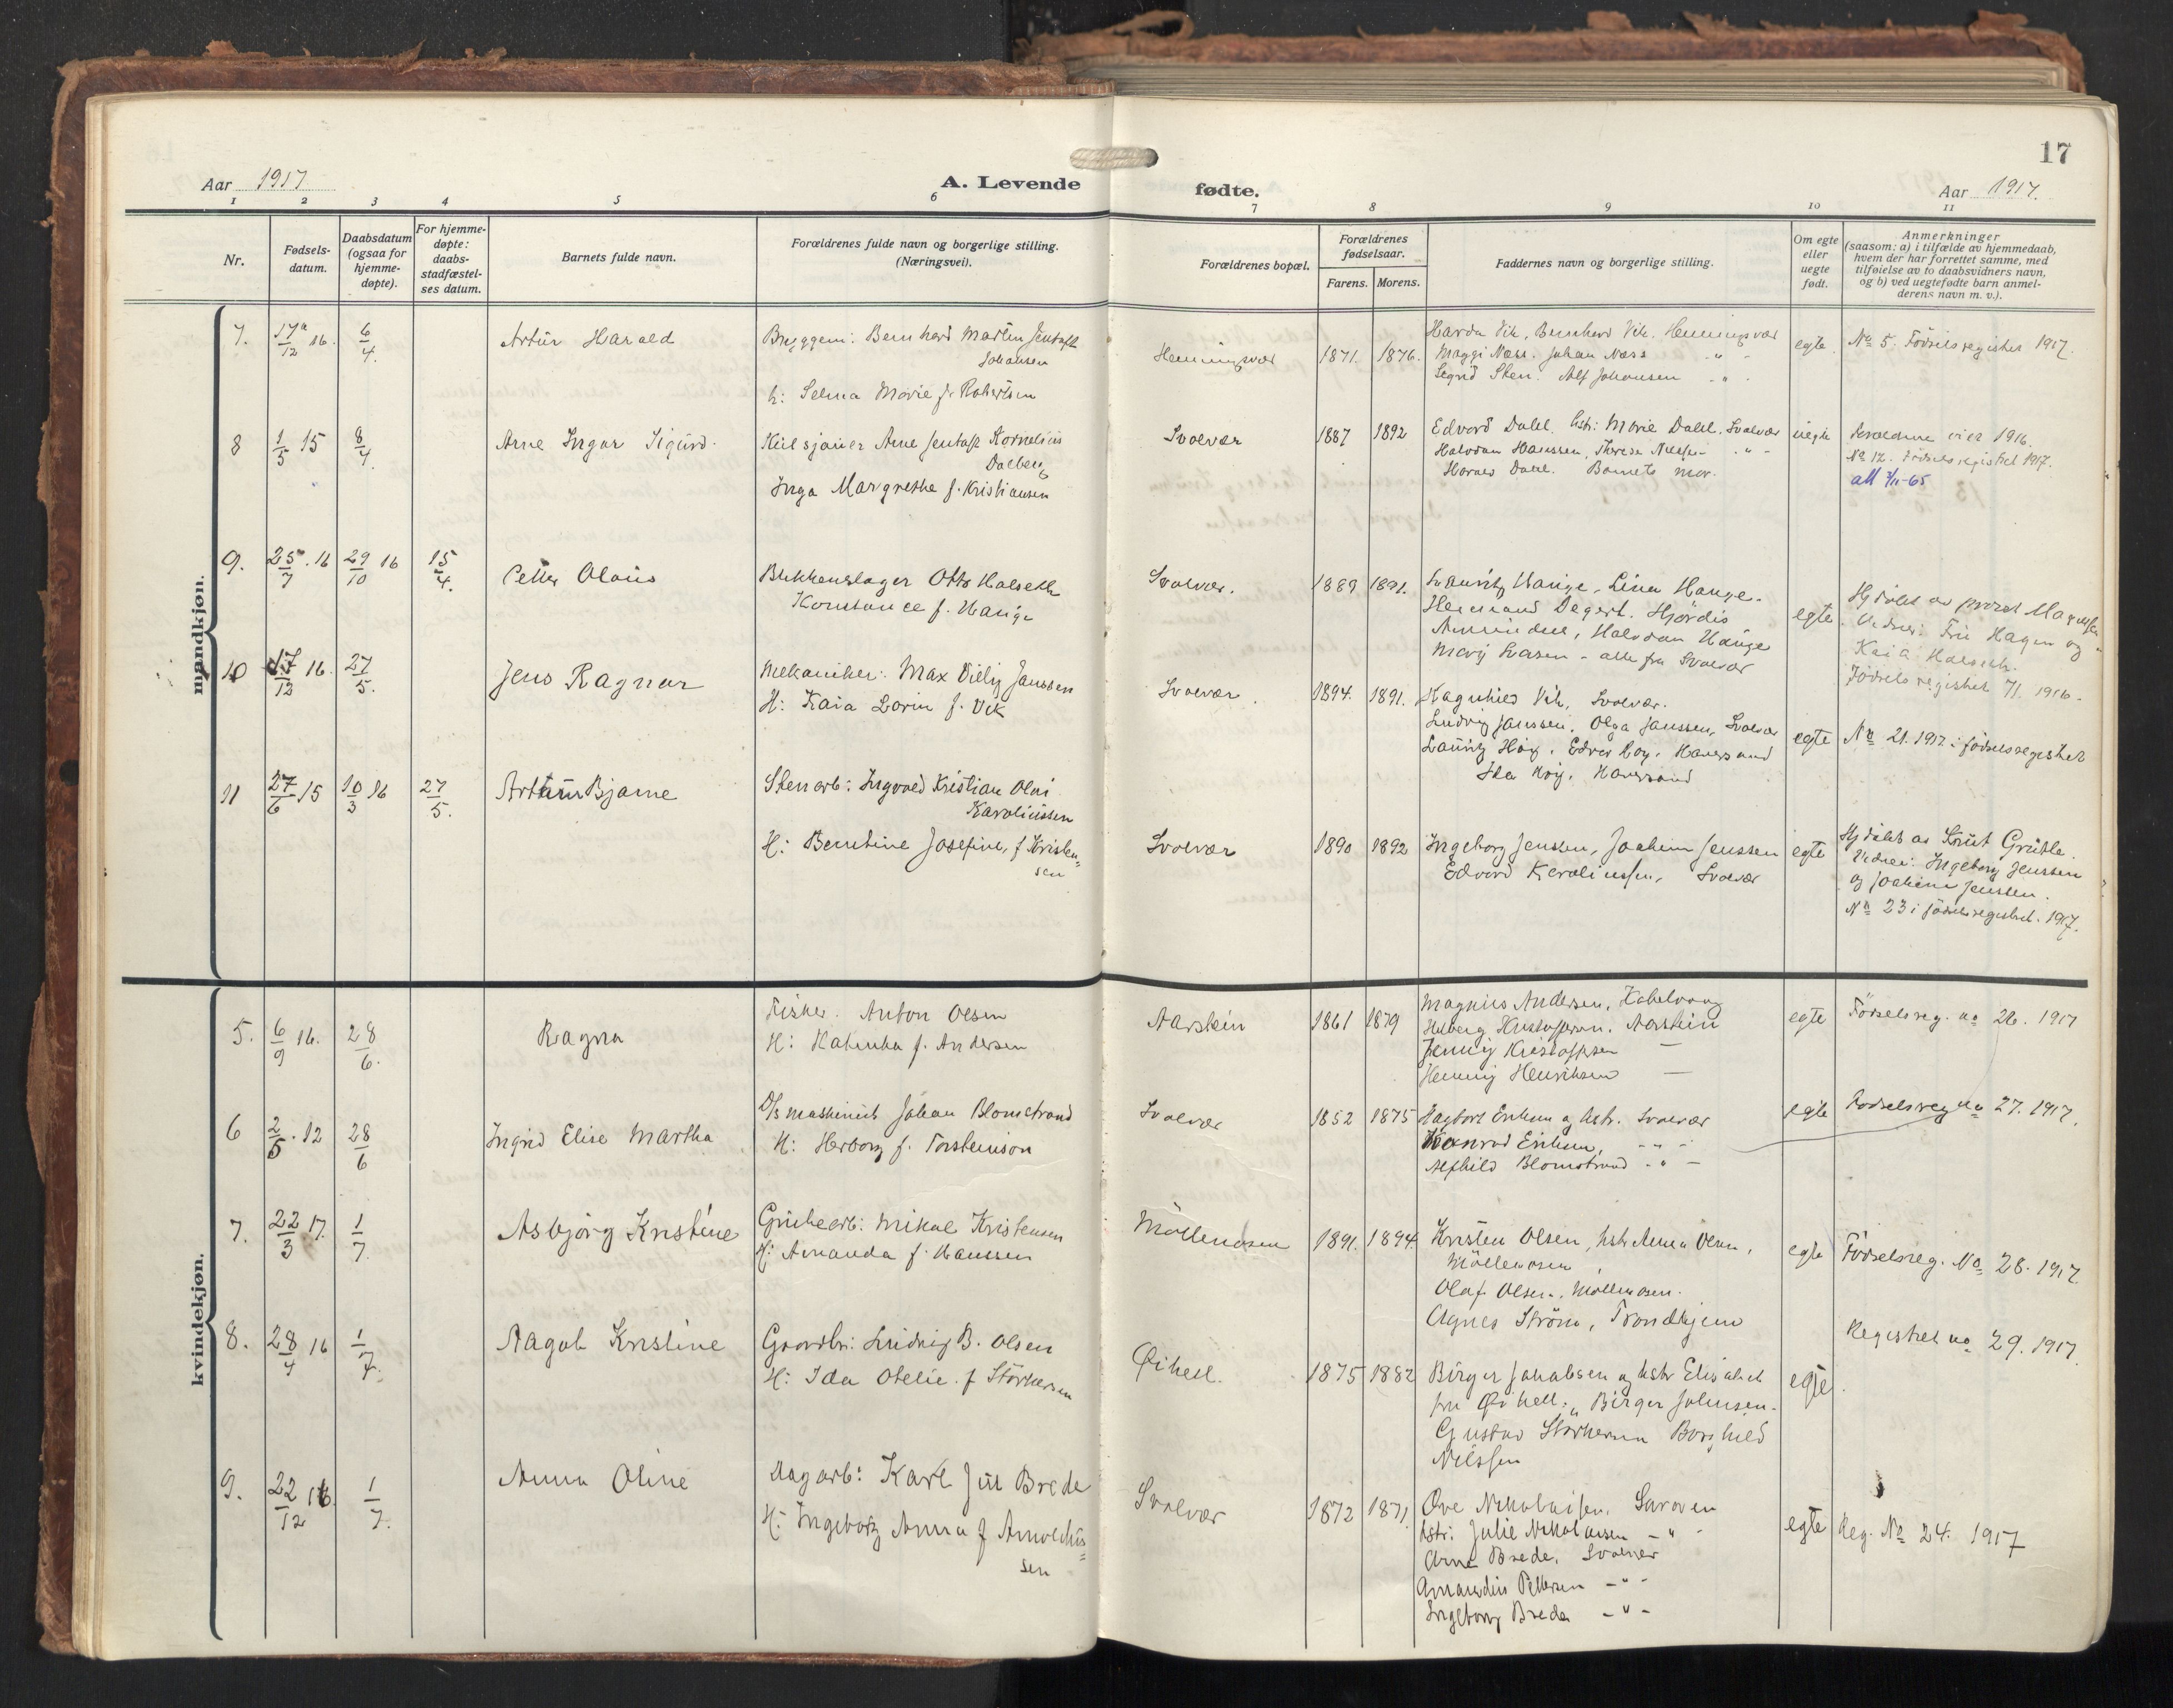 17
Aar 1917
A. Levende
fødte.
Aar 1917.
1 2 3 4 5 6 7 8 9 10 11
Nr.
Fødsels-
datum.
Daabsdatum
(ogsaa for
hjemme-
døpte).
For hjemme-
døpte:
daabs-
stadfæstel-
ses datum.
Barnets fulde navn.
Forældrenes fulde navn og borgerlige stilling.
(Næringsvei).
Forældrenes bopæl.
Forældrenes
fødselsaar.
Farens. Morens.
Faddernes navn og borgerlige stilling.
Om egte
eller
uegte
født.
Anmerkninger
(saasom: a) i tilfælde av hjemmedaab,
hvem der har forrettet samme, med
tilføielse av to daabsvidners navn,
og b) ved uegtefødte barn anmel-
derens navn m. v.).
mandkjøn.
7. 17/12 16. 6/4. Artur Harald
Bernhard Martin
Johansen
h: Selma Marie f. Robertsen
Henningsvær 1871. 1876.
Vik, Bernhard Vik. Henningsvær
Maggi Næss. Johan Næss " -
Sigrid Sten. Alf Johansen - " -
egte
No 5. Fødselsregistret 1917.
8 1/5 15 8/4. Arne Ingar Sigurd.
Arne Kornelius
Dalberg
Inga Margrethe f. Kristiansen
Svolvær 1887 1892
Edvard Dahl. hstr: Marie Dahl. Svolvær
Halvdan Hanssen, Therese - " -
Harald Dahl. Barnets mor.
uegte
viet 1916.
No 12. Fødselsregistret 1917.
9. 25/7. 16 29/10 16 15/4. Petter Olaus
Blikkenslager Otto Halseth
Konstance f. Hauge
Svolvær. 1889 1891.
Lauritz Hauge. Lina Hauge.
Hermand Degert. Hjördis
Halvdan Hauge
alle fra Svolvær
egte
Hj.døbt av provst
Vidner: Fru Hagen og
Kaia Halseth.
Fødselsregistret 71. 1916.
10 17/12 16. 27/5. Jens Ragnar
Mekaniker: Max Janssen
H: Kaia f. Vik
Svolvær 1894. 1891.
Ragnhild Vik, Svolvær.
Ludvig Janssen, Olga Janssen, Svolvær
Lauritz Höig.
Höig.
egte
No 21. 1917 i fødselsregistret
11 27/6 15 10/3 16 27/5. Artur Bjarne
Stenarb: Ingvald Kristian Olai
Karoliussen
H: Berntine Josefine, f. Kristen-
sen
Svolvær 1890 1892
Ingeborg Jenssen, Joakim Jenssen
Edvard Karoliussen, Svolvær
egte
Hj.døbt av Knut Grütle.
Vidner: Ingeborg Jenssen
og Joakim Jenssen.
No 23 i fødselsregistret. 1917.
kvindekjøn.
5. 6/9 16. 28/6. Ragna
Fisker. Anton Olsen
H: Katinka f. Andersen
Aarstein 1861 1879
Magnus Andersen, Kabelvaag
Kristoffersen. Aarstein
Jenny Kristoffersen —
Henny Henriksen —
egte
Fødselsreg. no 26. 1917
6 2/5. 12 28/6 Ingrid Elise Martha
D/s maskinist Johan Blomstrand
H: Herborg f. Torsteinson
Svolvær 1852 1875
Hagbart Eriksen og hstr. Svolvær
Konrad Eriksen, - " -
Alfhild Blomstrand - " -
egte
Fødselsreg no 27. 1917.
7. 22/3 17. 1/7. Asbjørg Kristine
Grubearb: Mikal Kristensen
H: Amanda f. Hanssen
Möllenosen 1891. 1894
Kristen Olsen, hstr Anna Olsen,
Möllenosen
Olaf Olsen, Möllenosen.
Agnes Ström, Trondhjem
egte
Fødselsreg. No 28. 1917.
8. 28/4 16 1/7. Aagot Kristine
Gaardbr: Ludvig B. Olsen
H: Ida Otelie. f Storkersen
Øihell. 1875 1882
Birger Jakobsen og hstr Elisabet
fru Øihell. " Birger Johnsen.
Gustav Storkersen Borghild
Nilssen
egte.
Registret no 29. 1917.
9. 22/12 16. 1/7. Anna Oline
Dagarb: Karl Jul Brede
H: Ingeborg Anna f Arnoldus-
sen
Svolvær 1872 1871.
Ove Nikolaisen.
hstr: Julie Nikolaisen - " -
Arne Brede. Svolvær
Pettersen - " -
Ingeborg Brede - " -
egte
Reg. No 24. 1917